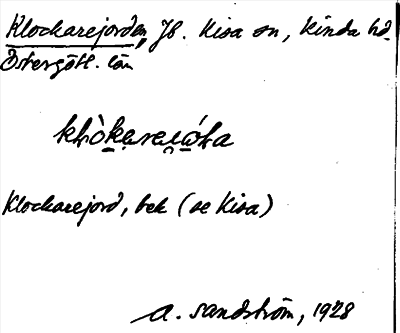 Klockarejorden, Jb. Kisa sn, Kinda hd
Östergötl. län
Klockarejord, bek (se Kisa)
A. Sandström, 1928